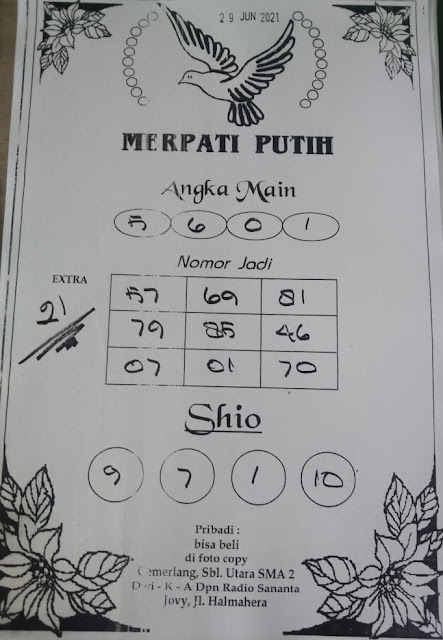 29 JUN 2021
MERPATI PUTIH
Angka Main
5 6 0 1
Nomor Jadi
EXTRA
21
57 69 81
79 85 46
07 01 70
Shio
9 7 1 10
Pribadi :
bisa beli
di foto copy
Cemerlang, Sbl. Utara SMA 2
- K - A Dpn Radio Sananta
Jovy, Jl. Halmahera